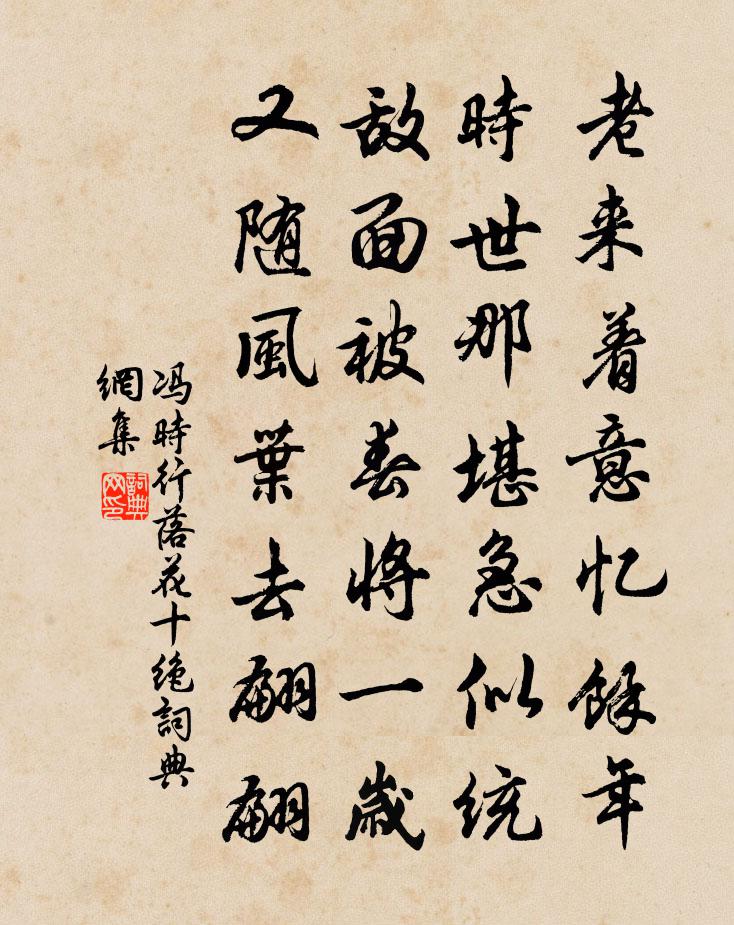 老来着意忆餘年
時世那堪急似统
敌面被春將一歳
又随風葉去翩翩
冯時行落花十绝詞典
網集
詞典
网印